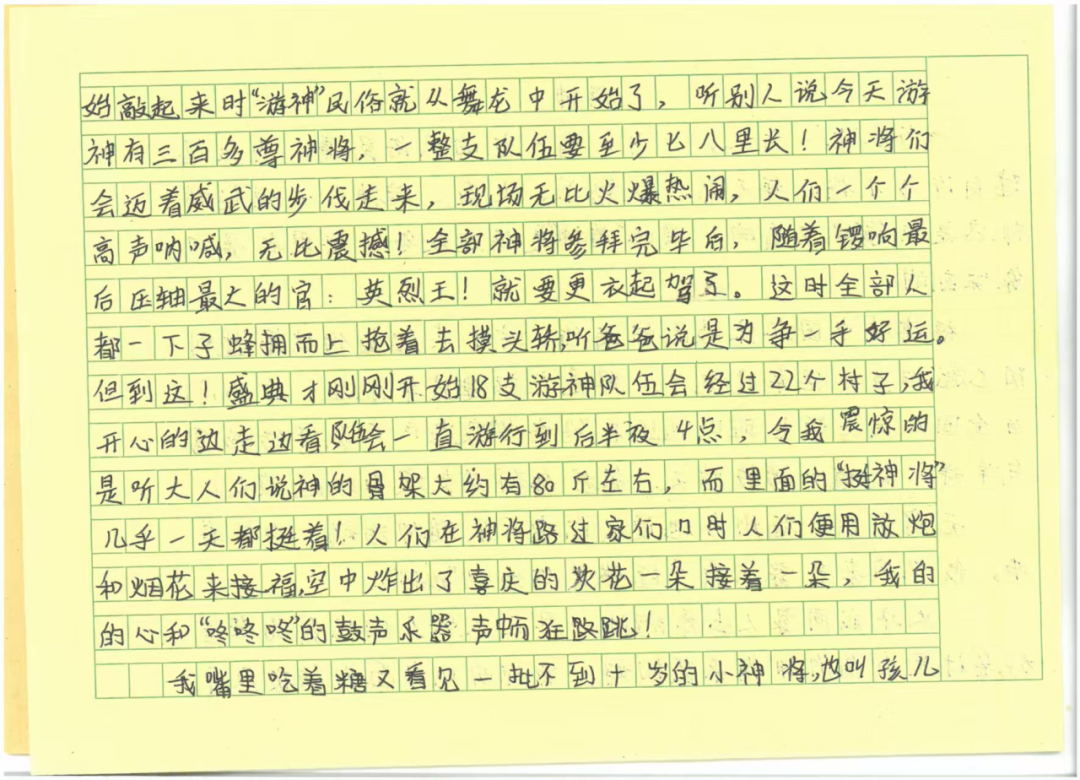 始敲起来时“游神”民俗就从舞龙中开始了，听别人说今天游
神有三百多尊神将，一整支队伍要至少七八里长！神将们
会迈着威武的步伐走来，现场无比火爆热闹，人们一个个
高声呐喊，无比震撼！全部神将参拜完毕后，随着锣响最
后压轴最大的官：英烈王！就要更衣起驾了。这时全部人
都一下子蜂拥而上抢着去摸头轿，听爸爸说是为争一手好运。
但到这！盛典才刚刚开始18支游神队伍会经过22个村子，我
开心的边走边看队伍会一直游行到后半夜4点，令我震惊的
是听大人们说神的骨架大约有80斤左右，而里面的“挺神将”
几乎一天都挺着！人们在神将路过家们口时人们便用放炮
和烟花来接福，空中炸出了喜庆的欢花一朵接着一朵，我的
的心和“咚咚咚”的鼓声乐器声中而狂跳！
我嘴里吃着糖又看见一批不到十岁的小神将，也叫孩儿